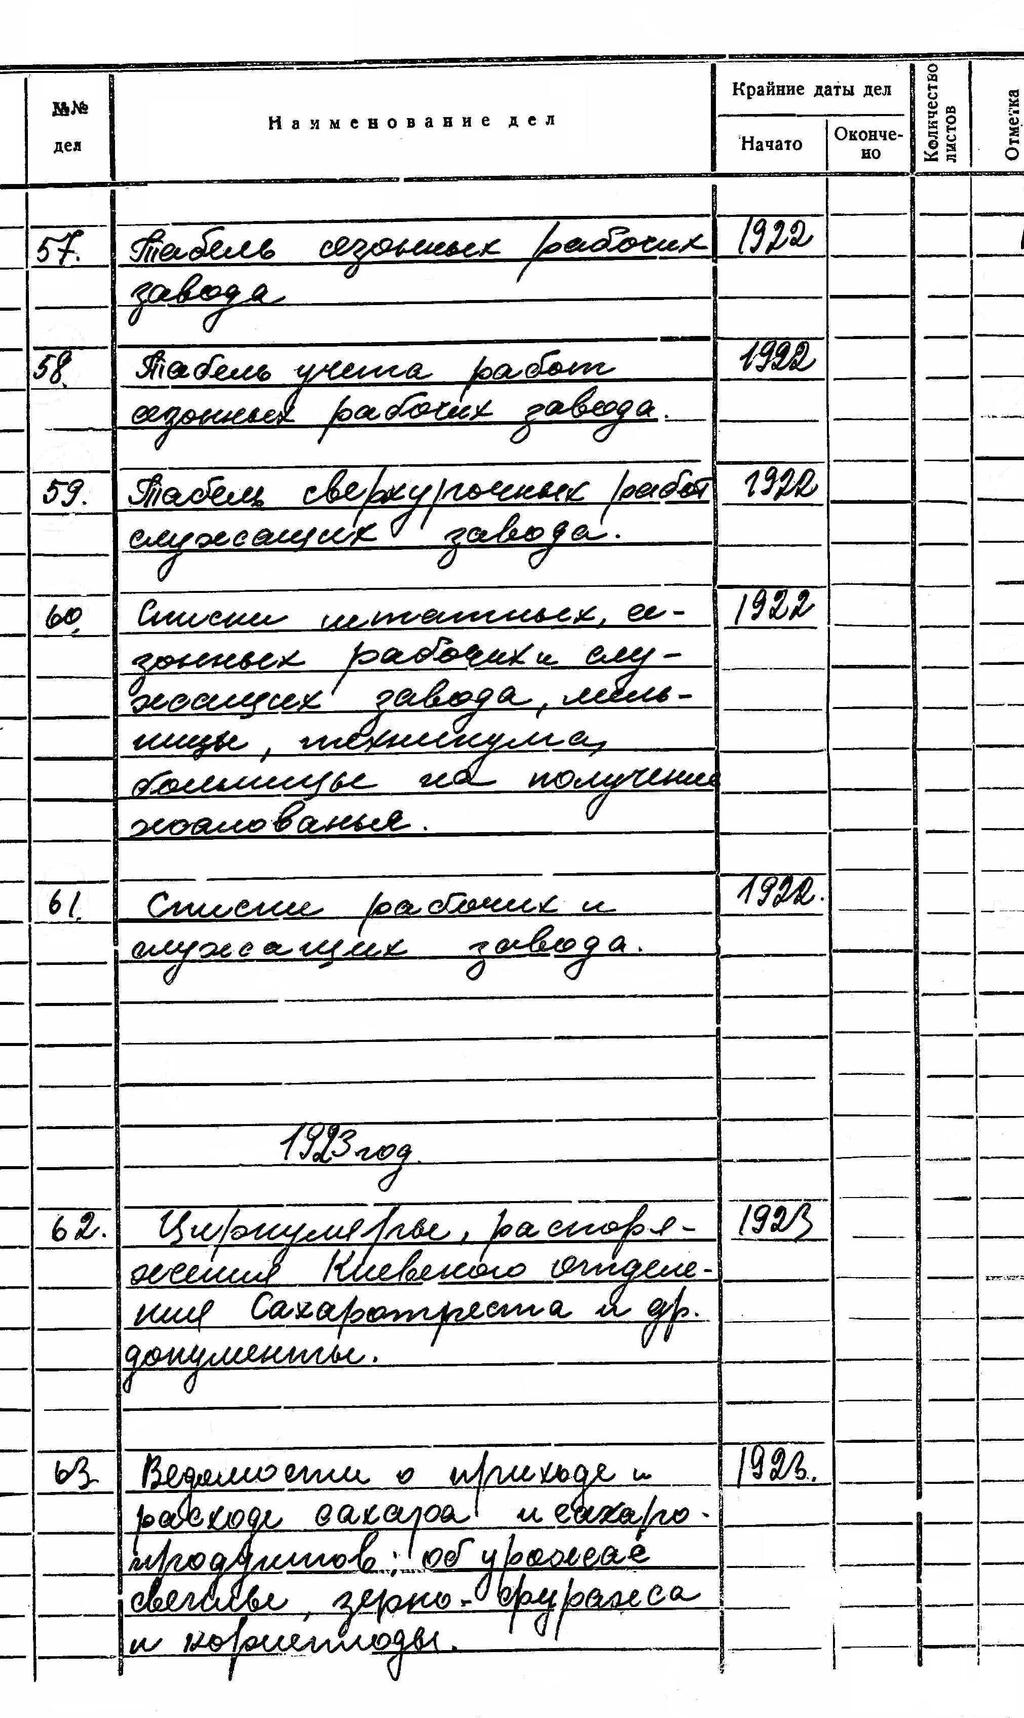 №№ дел
Наименование дел
Крайние даты дел
Начато
Окончено
Количество листов
Отметка
57. Табель сезонных рабочих 1922
завода
58. Табель учета работ 1922
сезонных рабочих завода.
59. Табель сверхурочных работ 1922
служащих завода.
60. Списки штатных, се- 1922
зонных рабочих и слу-
жащих завода, мель-
ницы, техникума,
больницы на получение
жалованья.
61. Списки рабочих и 1922.
служащих завода.
1923 год.
62. Циркуляры, распоря- 1923
жения Киевского отделе-
ния Сахаротреста и др.
документы.
63. Ведомости о приходе и 1923.
расходе сахара и сахаро-
продуктов; об урожае
свеклы, зерно-фуража
и корнеплоды.